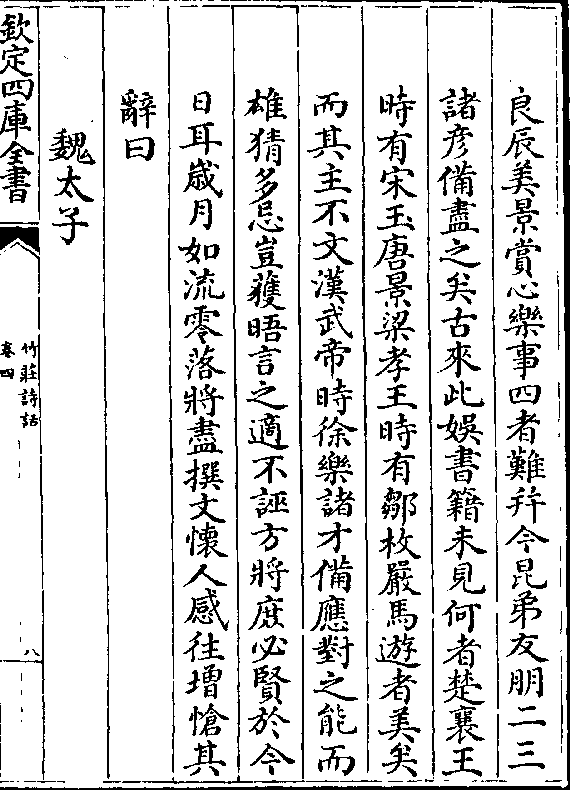 良辰美景賞心樂事四者難幷今昆弟友朋二三
諸彦備盡之矣古來此娛書籍未見何者楚襄王
時有宋玉唐景梁孝王時有鄒枚嚴馬遊者美矣
而其主不文漢武帝時徐樂諸才備應對之能而
雄猜多忌豈獲晤言之適不誣方將庶必賢於今
日耳歲月如流零落將盡撰文懷人感往增愴其
辭曰
魏太子
欽定四庫全書
竹莊詩話
卷四
八